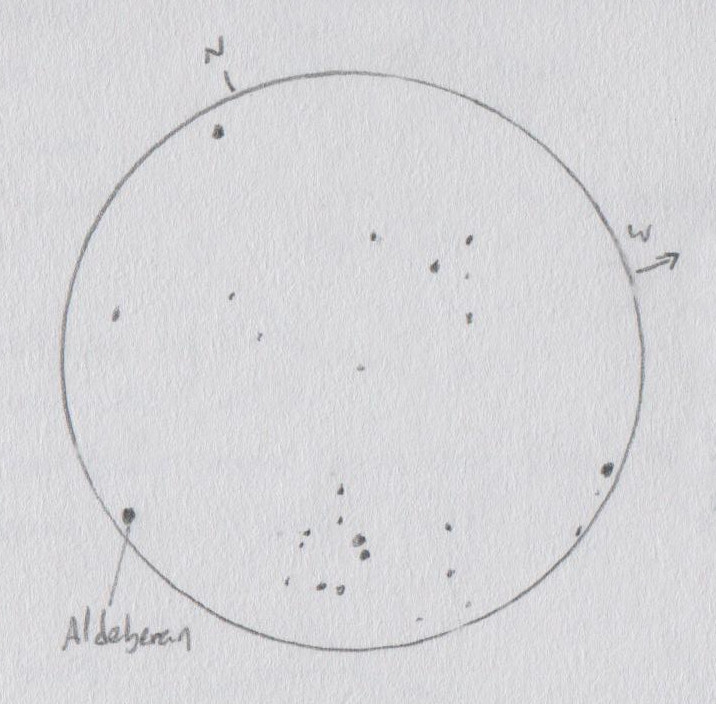 N
W
Aldeberan